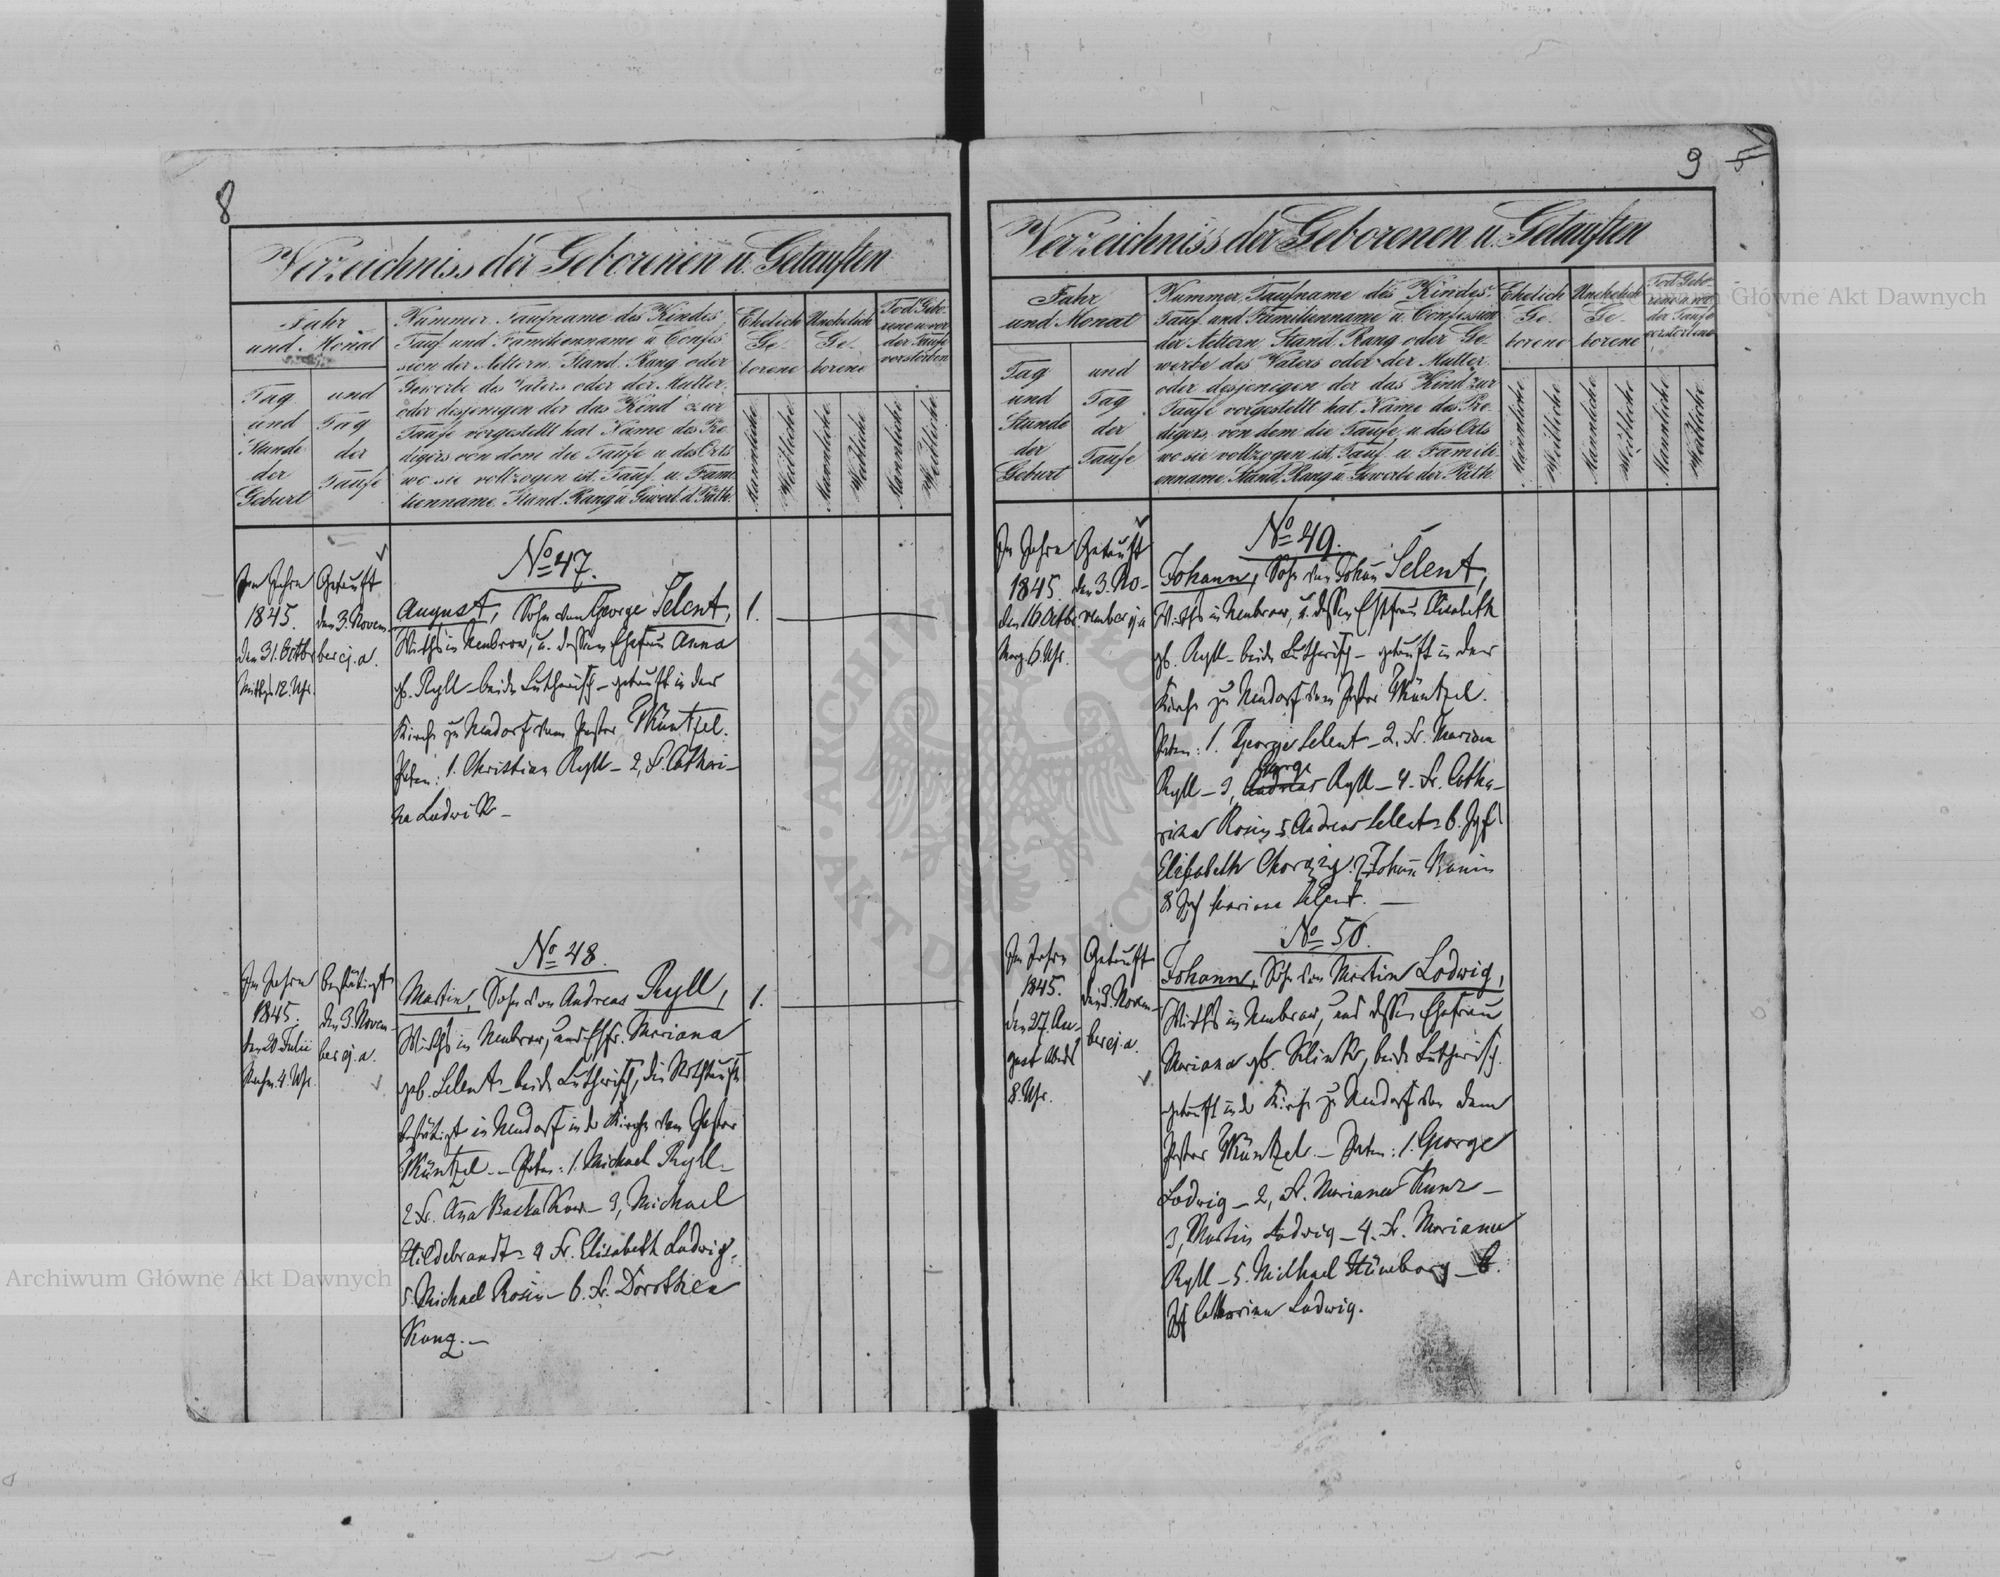 8
Verzeichniss der Geborenen u. Getauften
Jahr
und Monat
Tag
und
Stunde
der
Geburt
und
Tag
der
Taufe
Nummer. Taufname des Kindes
Tauf und Familienname u Confes
sion der Aeltern. Stand. Rang oder
Gewerbe des Vaters oder der Mutter.
oder desjenigen der das Kind zur
Taufe vorgestellt hat. Name des Pre
digers von dem die Taufe u des Orts
wo sie vollzogen ist. Tauf u. Fami
lienname. Stand. Rang u Gewerb. d. Path.
Ehelich
Ge
borene
Unehelich
Ge
borene
Tod Gebo
rene u vor
der Taufe
verstorben
Männliche
Weibliche
Männliche
Weibliche
Männliche
Weibliche
Im Jahre
1845.
den 31. Octbr
Mittgs 12. Uhr.
Getauft
den 3. Novem
ber ej. a.
No 47.
August, Sohn von George Selent,
Wirths in Neubrow, u. dessen Ehefrau Anna
gb. Ryll – beide Lutherisch – getauft in der
Kirche zu Neudorf vom Pastor Müntzel.
Paten: 1. Christian Ryll – 2, Fr. Cathri–
na Ludwik –
1.
Im Jahre
1845.
den 20 Julii
Nachm. 4. Uhr.
Bestätigt
den 3. Novem–
ber ej. a.
No 48.
Martin, Sohn von Andreas Ryll,
Wirths in Neubrow, und Ehfr. Mariana
geb. Selent – beide Lutherisch, die Nothtaufe
bestätigt in Neudorf in der Kirche vom Pastor
Müntzel. – Paten: 1. Michael Ryll –
2 Fr. Ana – 3, Michael
Hildebrandt – 4 Fr. Elisabeth Ludwig.
5. Michael Rosin – 6. Fr. Dorothea
Kunz. –
1.
9 5
Verzeichniss der Geborenen u. Getauften
Jahr
und Monat
Tag
und
Stunde
der
Geburt
und
Tag
der
Taufe
Nummer. Taufname des Kindes.
Tauf und Familienname u. Confession
der Aeltern, Stand. Rang oder Ge
werbe des Vaters oder der Mutter.
oder desjenigen der das Kind zur
Taufe vorgestellt hat. Name des Pre
digers, von dem die Taufe, u. des Orts
wo sie vollzogen ist. Tauf u. Famili
enname, Stand, Rang u. Gewerbe der Path.
Ehelich
Ge
borene
Unehelich
Ge
borene
Tod Gebo
rene u. vor
der Taufe
verstorbene
Männliche
Weibliche
Männliche
Weibliche
Männliche
Weibliche
Im Jahre
1845.
den 16 Octbr
Morg. 6. Uhr.
Getauft
den 3. No–
vember ej. a
No 49.
Johann, Sohn von Johann Selent,
Wirths in Neubrow, u. dessen Ehefrau Elisabeth
gb. Ryll – beide Lutherisch – getauft in der
Kirche zu Neudorf vom Pastor Müntzel.
Paten: 1. George Selent – 2. Fr. Mariana
George
Ryll – 3, Andreas Ryll – 4. Fr. Catha–
rina Rosin 5 Andreas Selent – 6. Jgf
Elisabeth 7 Johann
8 Jgf Mariana Selent. –
Im Jahre
1845.
den 27. Au–
gust Abends
8. Uhr.
Getauft
den 3. Novem–
ber ej. a.
No 50.
Johann, Sohn von Martin Lodwig,
Wirths in Neubrow, und dessen Ehefrau
Mariana gb. Selink, beide Lutherisch.
getauft in der Kirche zu Neudorf von dem
Pastor Müntzel – Paten: 1. George
Lodwig – 2, Fr. Mariana Kunz –
3, Martin Ludwig – 4. Fr. Mariana
Ryll – 5. Michael – 6.
Jgf Catharina Ludwig.
Archiwum Główne Akt Dawnych
Główne Akt Dawnych